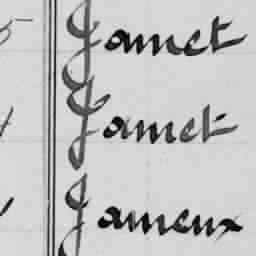 Jamet
Jamet
Jameux